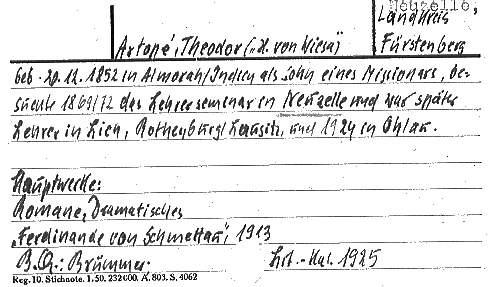 Neuzelle,
Landkreis
Artopé, Theodor („H. von Wiesa“) Fürstenberg
geb. 20.12.1852 in Almorah/Indien als Sohn eines Missionars, be-
suchte 1869/72 das Lehrerseminar in Neuzelle und war später
Lehrer in Lien, Rothenburg/Lausitz, und 1924 in Ohlau.
Hauptwerke:
Romane, Dramatisches
„Ferdinande von Schmettau“, 1913
B.Qu.: Brümmer. Lit.-Kal. 1925
Reg. 10. Stichnote. 1.50. 232000. A. 803. S. 4062